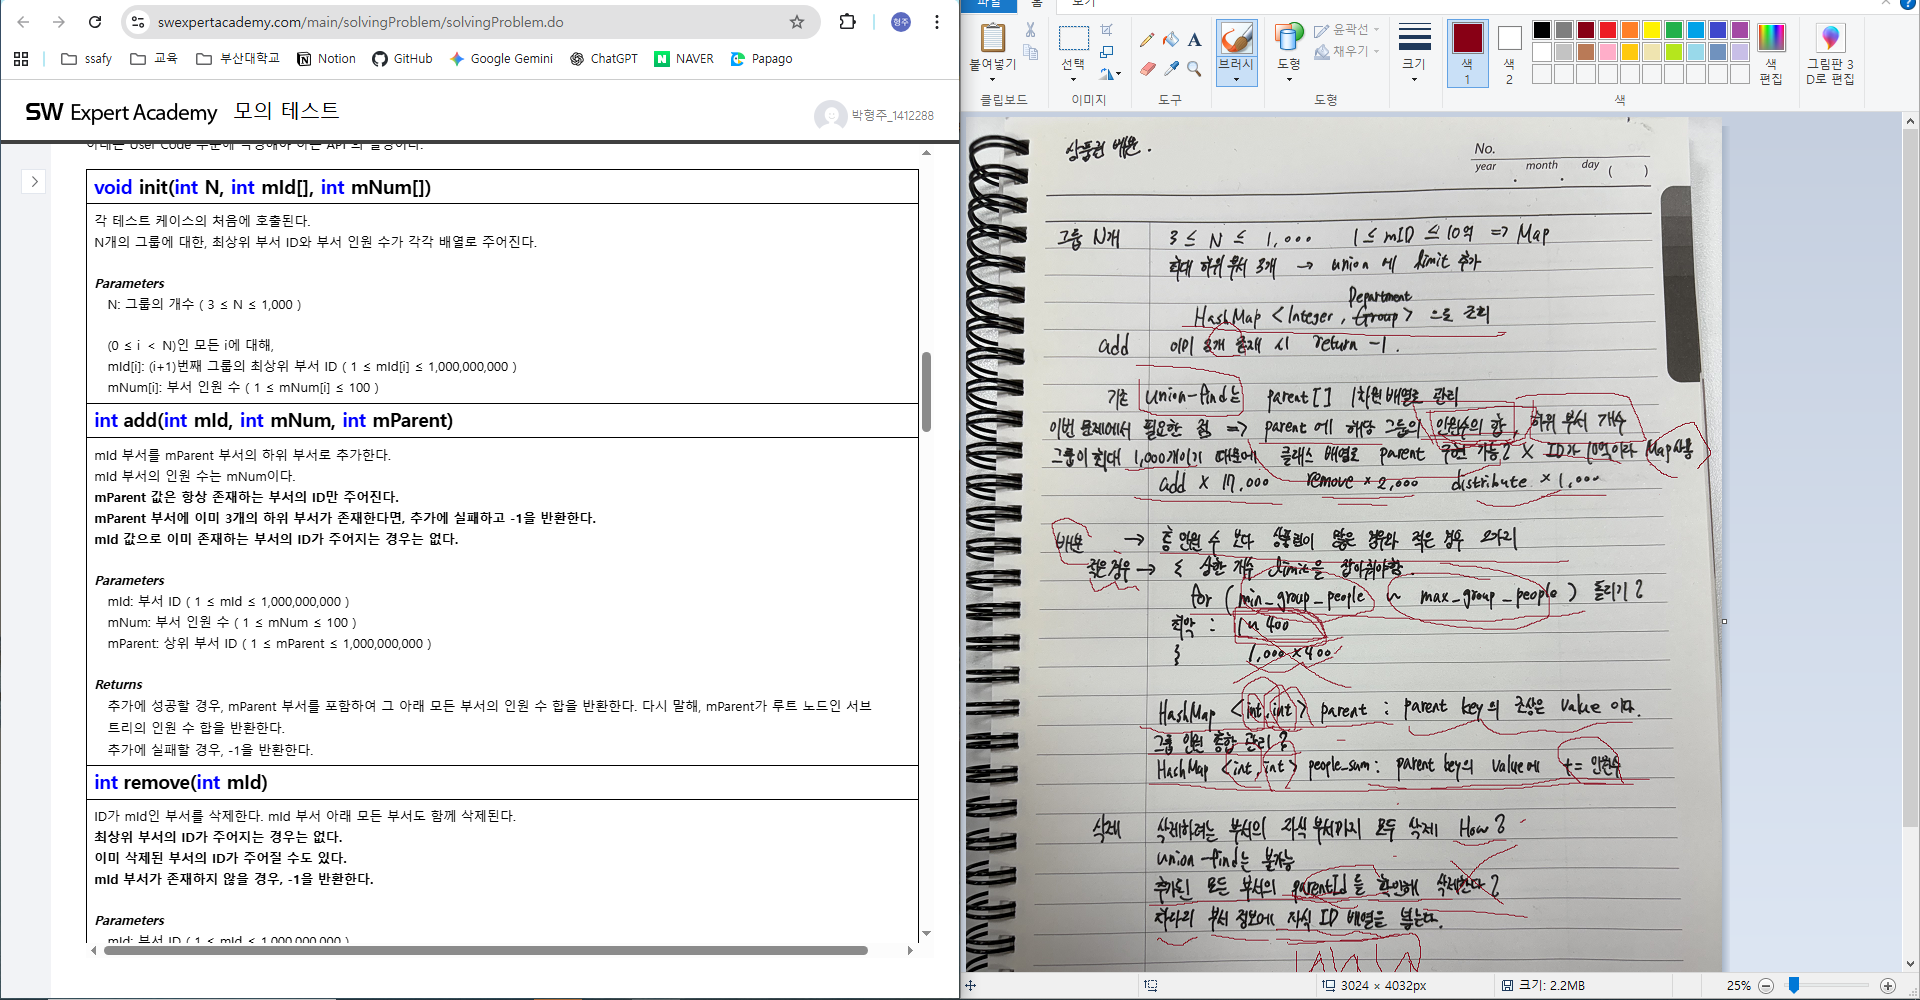 swexpertacademy.com/main/solvingProblem/solvingProblem.do
형주
ssafy
교육
부산대학교
Notion
GitHub
Google Gemini
ChatGPT
NAVER
Papago
SW Expert Academy 모의 테스트
박형주_1412288
void init(int N, int mId[], int mNum[])
각 테스트 케이스의 처음에 호출된다.
N개의 그룹에 대한, 최상위 부서 ID와 부서 인원 수가 각각 배열로 주어진다.
Parameters
N: 그룹의 개수 ( 3 ≤ N ≤ 1,000 )
(0 ≤ i < N)인 모든 i에 대해,
mId[i]: (i+1)번째 그룹의 최상위 부서 ID ( 1 ≤ mId[i] ≤ 1,000,000,000 )
mNum[i]: 부서 인원 수 ( 1 ≤ mNum[i] ≤ 100 )
int add(int mId, int mNum, int mParent)
mId 부서를 mParent 부서의 하위 부서로 추가한다.
mId 부서의 인원 수는 mNum이다.
mParent 값은 항상 존재하는 부서의 ID만 주어진다.
mParent 부서에 이미 3개의 하위 부서가 존재한다면, 추가에 실패하고 -1을 반환한다.
mId 값으로 이미 존재하는 부서의 ID가 주어지는 경우는 없다.
Parameters
mId: 부서 ID ( 1 ≤ mId ≤ 1,000,000,000 )
mNum: 부서 인원 수 ( 1 ≤ mNum ≤ 100 )
mParent: 상위 부서 ID ( 1 ≤ mParent ≤ 1,000,000,000 )
Returns
추가에 성공할 경우, mParent 부서를 포함하여 그 아래 모든 부서의 인원 수 합을 반환한다. 다시 말해, mParent가 루트 노드인 서브
트리의 인원 수 합을 반환한다.
추가에 실패할 경우, -1을 반환한다.
int remove(int mId)
ID가 mId인 부서를 삭제한다. mId 부서 아래 모든 부서도 함께 삭제된다.
최상위 부서의 ID가 주어지는 경우는 없다.
이미 삭제된 부서의 ID가 주어질 수도 있다.
mId 부서가 존재하지 않을 경우, -1을 반환한다.
Parameters
mId: 부서 ID ( 1 ≤ mId ≤ 1,000,000,000 )
파일 홈 보기
붙여넣기
선택
브러시
도형
윤곽선
채우기
크기
색 1
색 2
색 편집
그림판 3D로 편집
클립보드
이미지
도구
도형
색
상품권 배분.
No.
year . month . day ( )
그룹 N개 3 ≤ N ≤ 1,000 1 ≤ mID ≤ 10억 => Map
최대 하위 부서 3개 → union 에 limit 추가
Department
HashMap <Integer, Group> 으로 관리
add 이미 3개 존재 시 return -1.
기존 union-find는 parent[] 1차원 배열로 관리
이번 문제에서 필요한 점 => parent에 해당 그룹의 인원수의 합, 하위 부서 개수
그룹이 최대 1,000개이기 때문에 클래스 배열로 parent 구현 가능? X ID가 10억이라 Map 사용
add × 17,000 remove × 2,000 distribute × 1,000
배분 → 총 인원 수 보다 상품권이 많은 경우와 적은 경우 2가지
적은 경우 → { 상한 개수 limit을 잡아줘야함.
for (min_group_people ~ max_group_people) 돌리기?
최악 : 1 ~ 400
} 1,000 × 400
HashMap <int, int> parent : parent key의 조상은 value 이다.
그룹 인원 총합 관리?
HashMap <int, int> people_sum : parent key의 value에 += 인원수
삭제 삭제하려는 부서의 자식 부서까지 모두 삭제 How?
union-find는 불가능
추가된 모든 부서의 parentId를 확인해 삭제한다?
차라리 부서 정보에 자식 ID 배열을 붙는다.
3024 × 4032px
크기: 2.2MB
25%